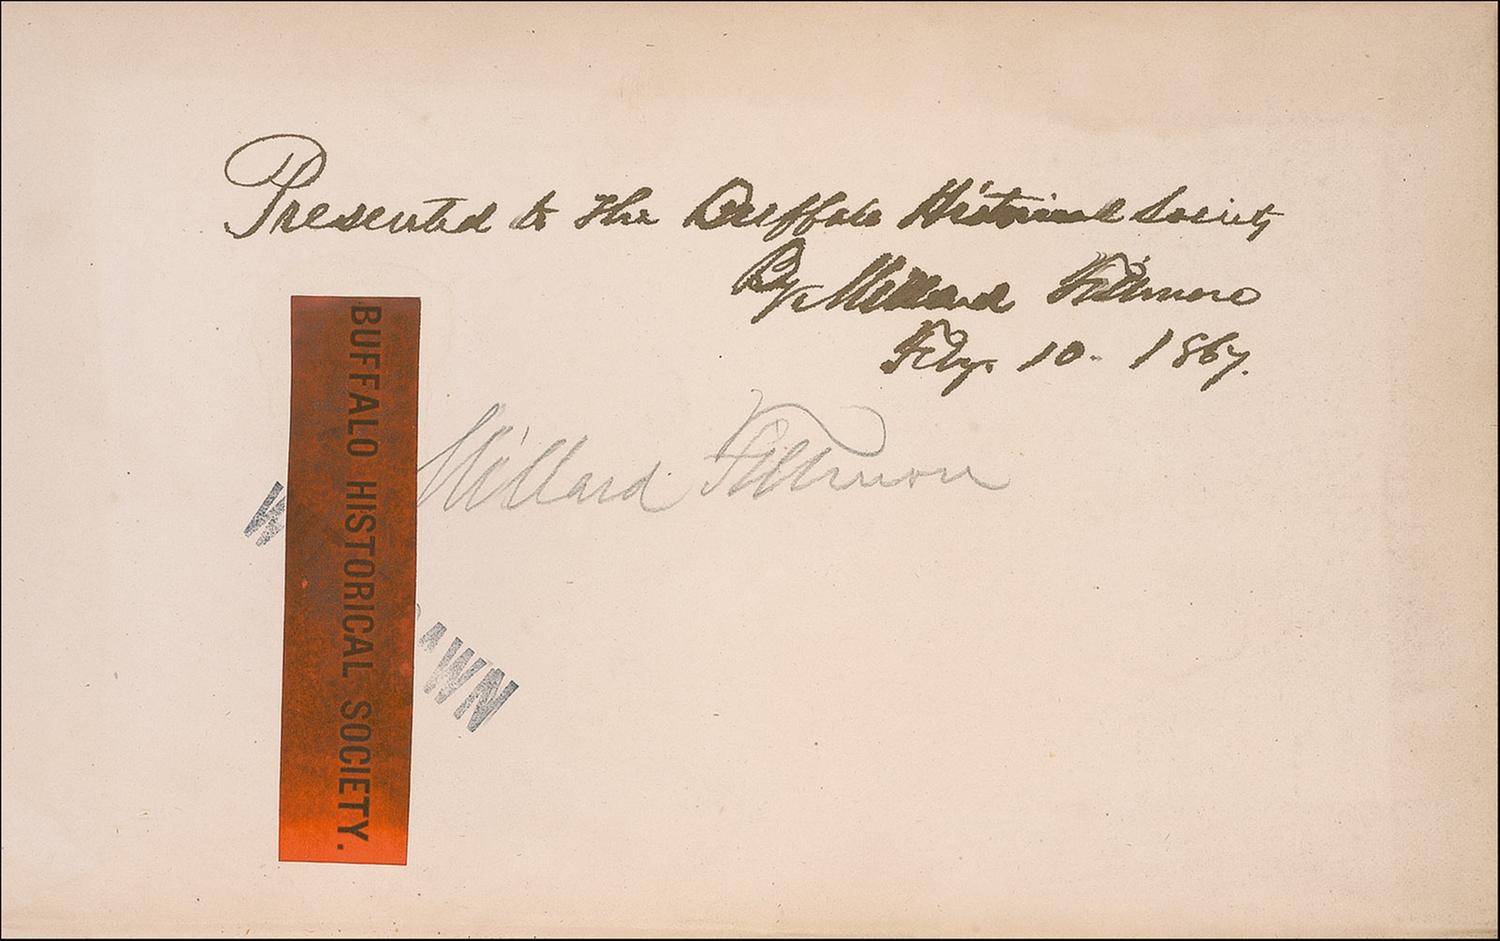 Presented to the Buffalo Historical Society
By Millard Fillmore
Feby. 10. 1867.
Millard Fillmore
BUFFALO HISTORICAL SOCIETY.
W
AWN